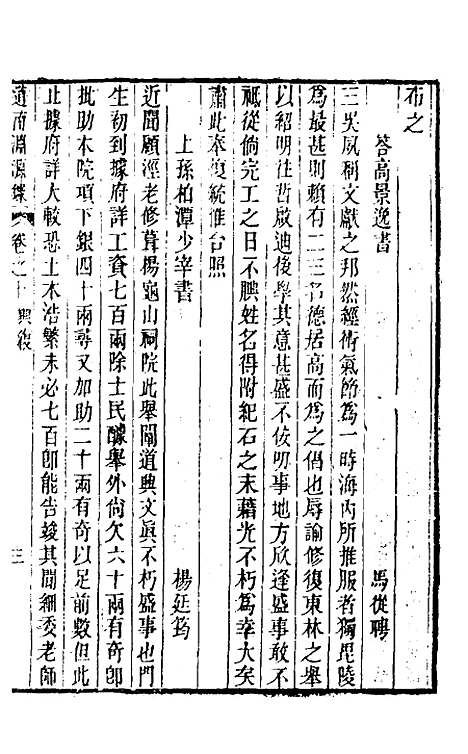 布之
答高景逸書 馬從聘
三吳夙稱文獻之邦然經術氣節爲一時海內所推服者獨毘陵
爲最甚則賴有二三名德居高而爲之倡也辱諭修復東林之舉
以紹明往哲啟迪後學其意甚盛不佞叨事地方欣逢盛事敢不
祗從倘完工之日不腆姓名得附紀石之末藉光不朽爲幸大矣
肅此奉復統惟台照
上孫柏潭少宰書 楊廷筠
近聞顧涇老修葺楊龜山祠院此舉闡道興文眞不朽盛事也門
生初到據府詳工資七百兩除士民醵舉外尚欠六十兩有奇卽
批助本院項下銀四十兩尋又加助二十兩有奇以足前數但此
止據府詳大較恐土木浩繁未必七百卽能告竣其間細委老師
道南淵源錄 卷之十 興復 三